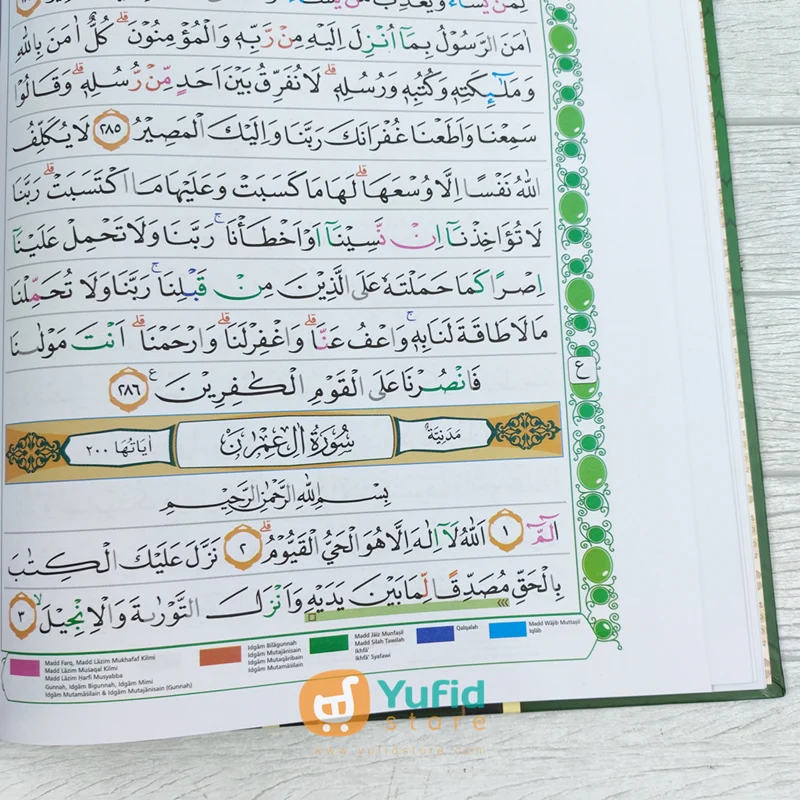 لِمَنْ يَّشَاۤءُ وَيُعَذِّبُ مَنْ يَّشَاۤءُ
اٰمَنَ الرَّسُوْلُ بِمَآ اُنْزِلَ اِلَيْهِ مِنْ رَّبِّهٖ وَالْمُؤْمِنُوْنَۗ كُلٌّ اٰمَنَ بِاللّٰهِ
وَمَلٰۤىِٕكَتِهٖ وَكُتُبِهٖ وَرُسُلِهٖۗ لَا نُفَرِّقُ بَيْنَ اَحَدٍ مِّنْ رُّسُلِهٖۗ وَقَالُوْا
سَمِعْنَا وَاَطَعْنَا غُفْرَانَكَ رَبَّنَا وَاِلَيْكَ الْمَصِيْرُ ٢٨٥ لَا يُكَلِّفُ
اللّٰهُ نَفْسًا اِلَّا وُسْعَهَاۗ لَهَا مَا كَسَبَتْ وَعَلَيْهَا مَا اكْتَسَبَتْۗ رَبَّنَا
لَا تُؤَاخِذْنَآ اِنْ نَّسِيْنَآ اَوْ اَخْطَأْنَاۚ رَبَّنَا وَلَا تَحْمِلْ عَلَيْنَآ
اِصْرًا كَمَا حَمَلْتَهٗ عَلَى الَّذِيْنَ مِنْ قَبْلِنَاۚ رَبَّنَا وَلَا تُحَمِّلْنَا
مَا لَا طَاقَةَ لَنَا بِهٖۚ وَاعْفُ عَنَّاۗ وَاغْفِرْ لَنَاۗ وَارْحَمْنَاۗ اَنْتَ مَوْلٰىنَا
فَانْصُرْنَا عَلَى الْقَوْمِ الْكٰفِرِيْنَ ࣖ ٢٨٦
ع
مَدَنِيَّةٌ سُوْرَةُ اٰلِ عِمْرٰنَ اٰيَاتُهَا ٢٠٠
بِسْمِ اللّٰهِ الرَّحْمٰنِ الرَّحِيْمِ
الۤمّۤ ١ اَللّٰهُ لَآ اِلٰهَ اِلَّا هُوَ الْحَيُّ الْقَيُّوْمُۗ ٢ نَزَّلَ عَلَيْكَ الْكِتٰبَ
بِالْحَقِّ مُصَدِّقًا لِّمَا بَيْنَ يَدَيْهِ وَاَنْزَلَ التَّوْرٰىةَ وَالْاِنْجِيْلَۙ ٣
Madd Farq, Madd Lāzim Mukhafaf Kilmi
Madd Lāzim Muṡaqal Kilmi
Madd Lāzim Ḥarfi Musyabba
Gunnah, Idgām Bigunnah, Idgām Mimi
Idgām Mutamāṡilain & Idgām Mutajānisain (Gunnah)
Idgām Bilāgunnah
Idgām Mutajānisain
Idgām Mutaqāribain
Idgām Mutamāṡilain
Madd Jāiz Munfaṣil
Madd Ṣilah Ṭawilah
Ikhfā'
Ikhfā' Syafawi
Qalqalah
Madd Wājib Muttaṣil
Iqlāb
Yufid
store
www.yufidstore.com